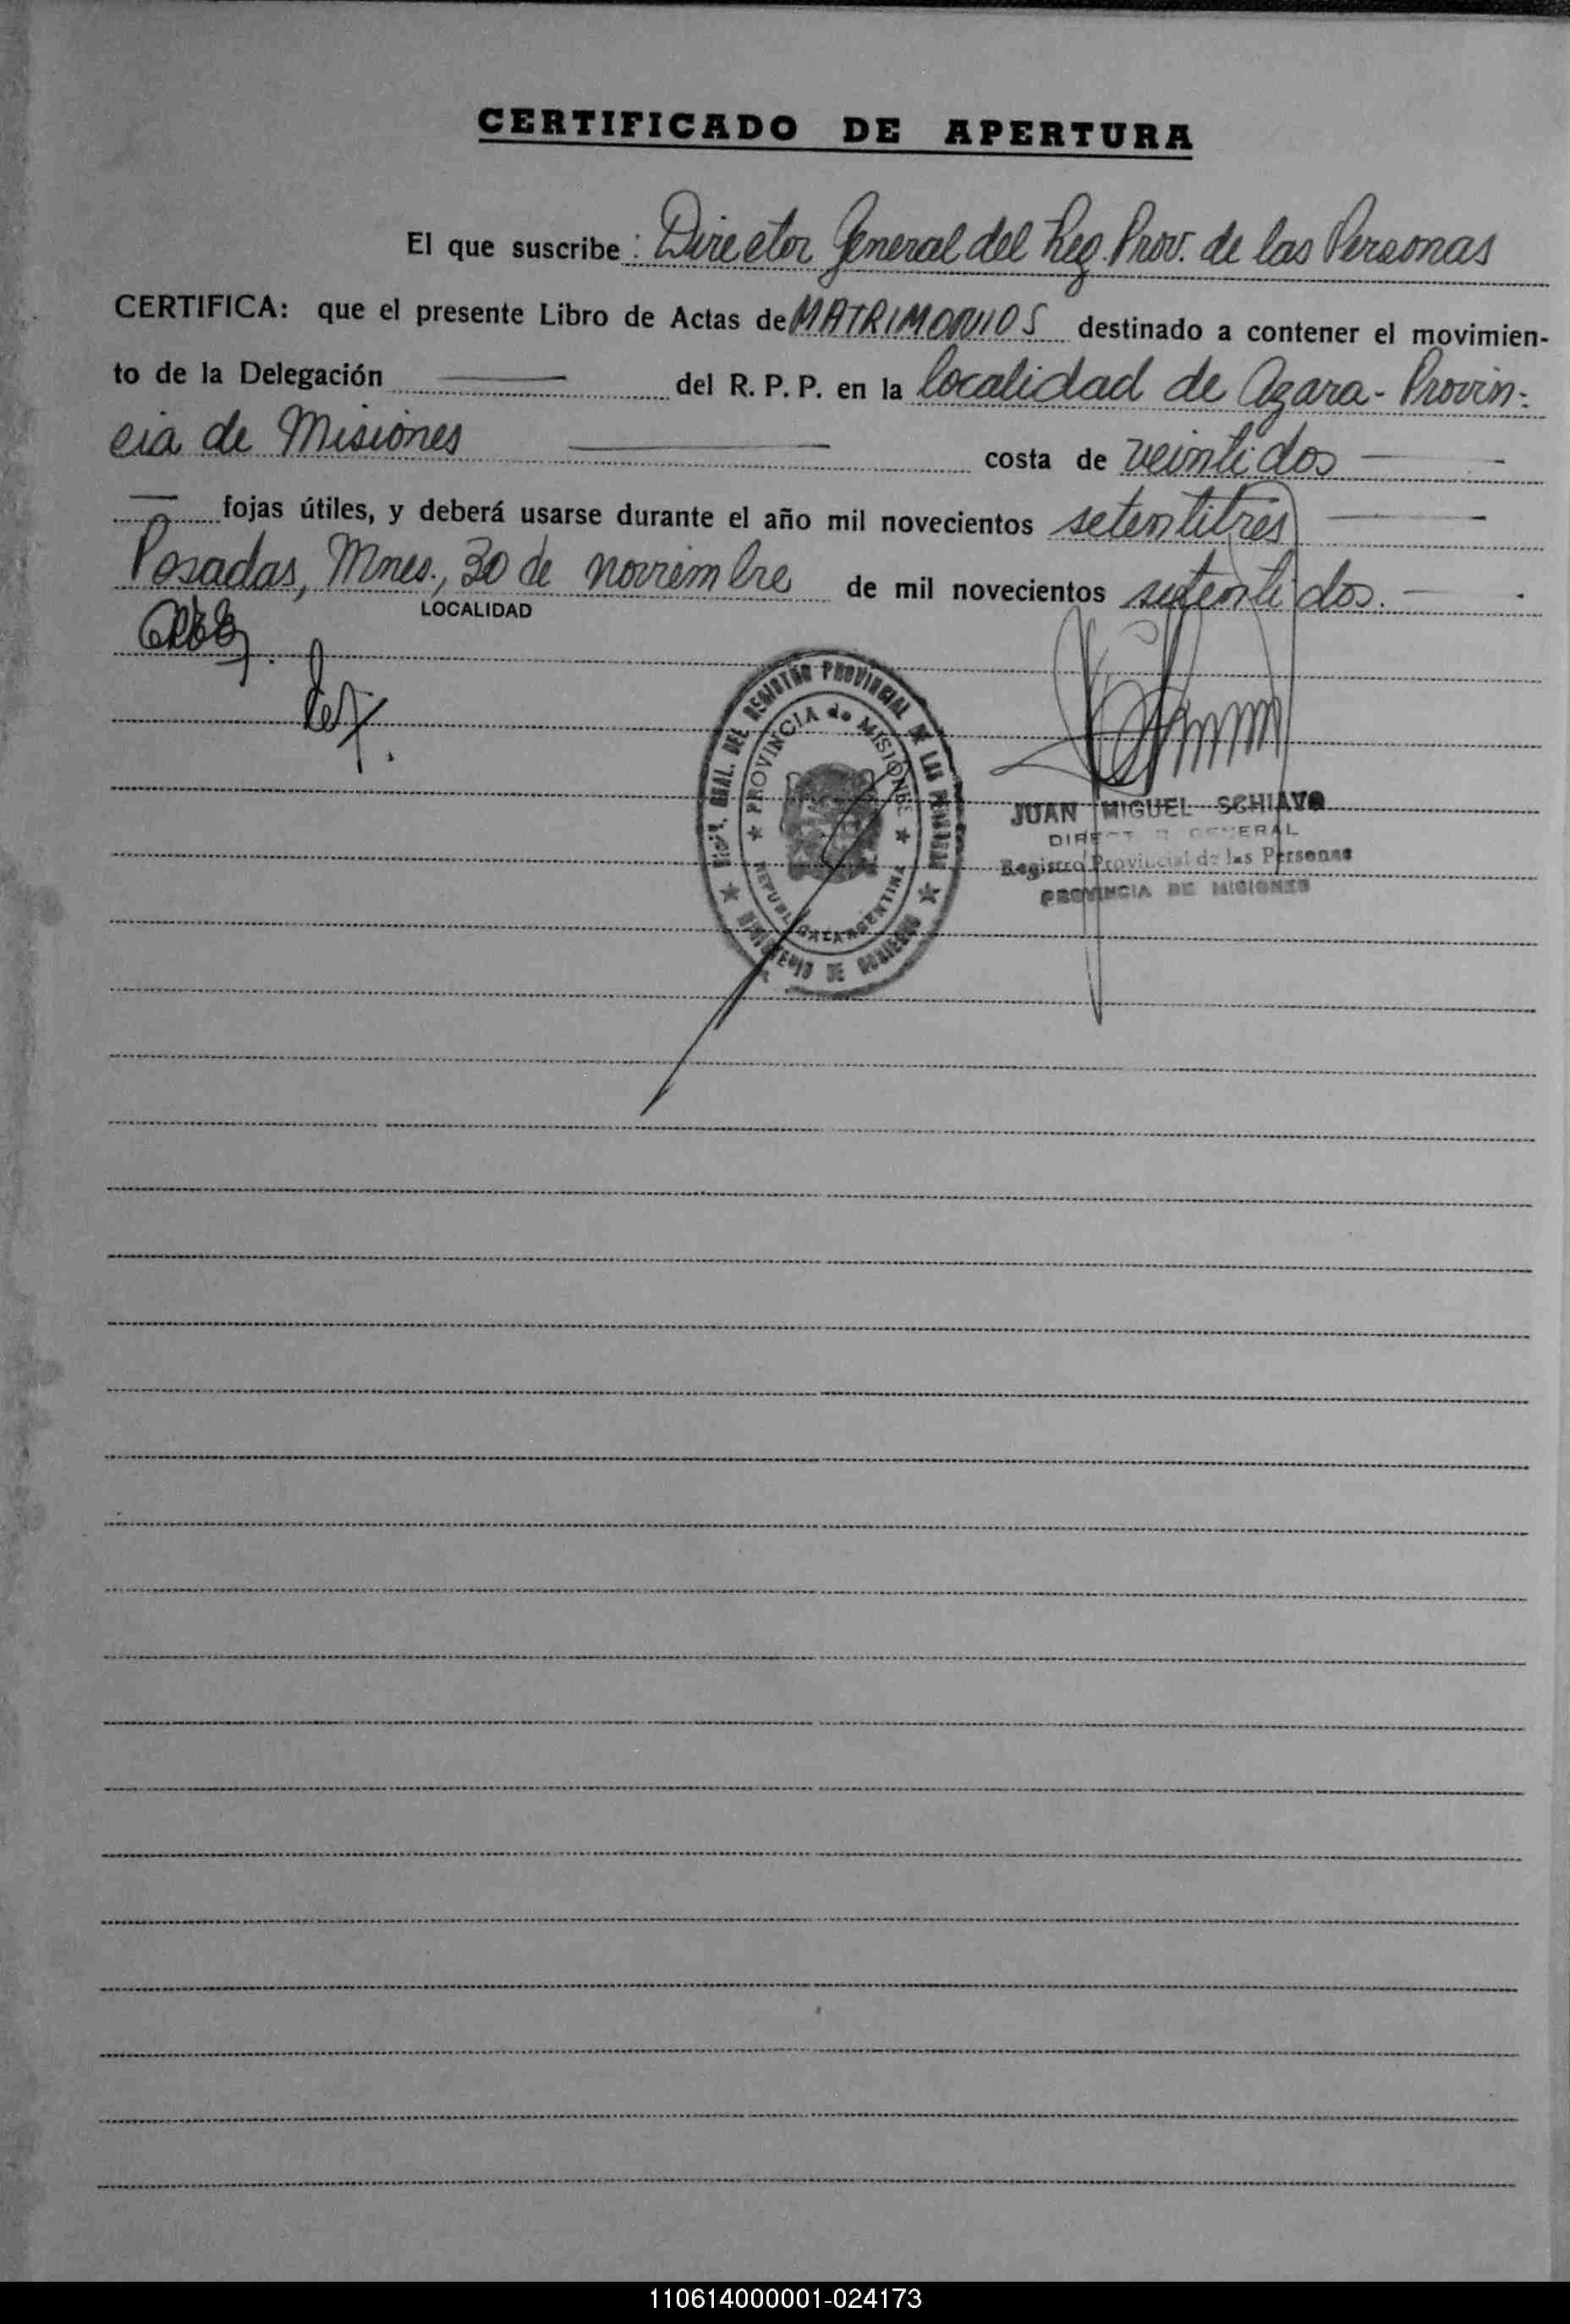 CERTIFICADO DE APERTURA
El que suscribe: Director General del Reg. Prov. de las Personas
CERTIFICA: que el presente Libro de Actas de MATRIMONIOS destinado a contener el movimien-
to de la Delegación del R. P. P. en la localidad de Azara - Provin-
cia de Misiones costa de veintidos
fojas útiles, y deberá usarse durante el año mil novecientos setentitres
Posadas, Mnes., 30 de noviembre de mil novecientos setentidos.
LOCALIDAD
GRAL. DEL REGISTRO PROVINCIAL DE LAS PERSONAS
PROVINCIA de MISIONES
REPUBLICA ARGENTINA
MINISTERIO DE GOBIERNO
JUAN MIGUEL SCHIAVO
DIRECTOR GENERAL
Registro Provincial de las Personas
PROVINCIA DE MISIONES
110614000001-024173